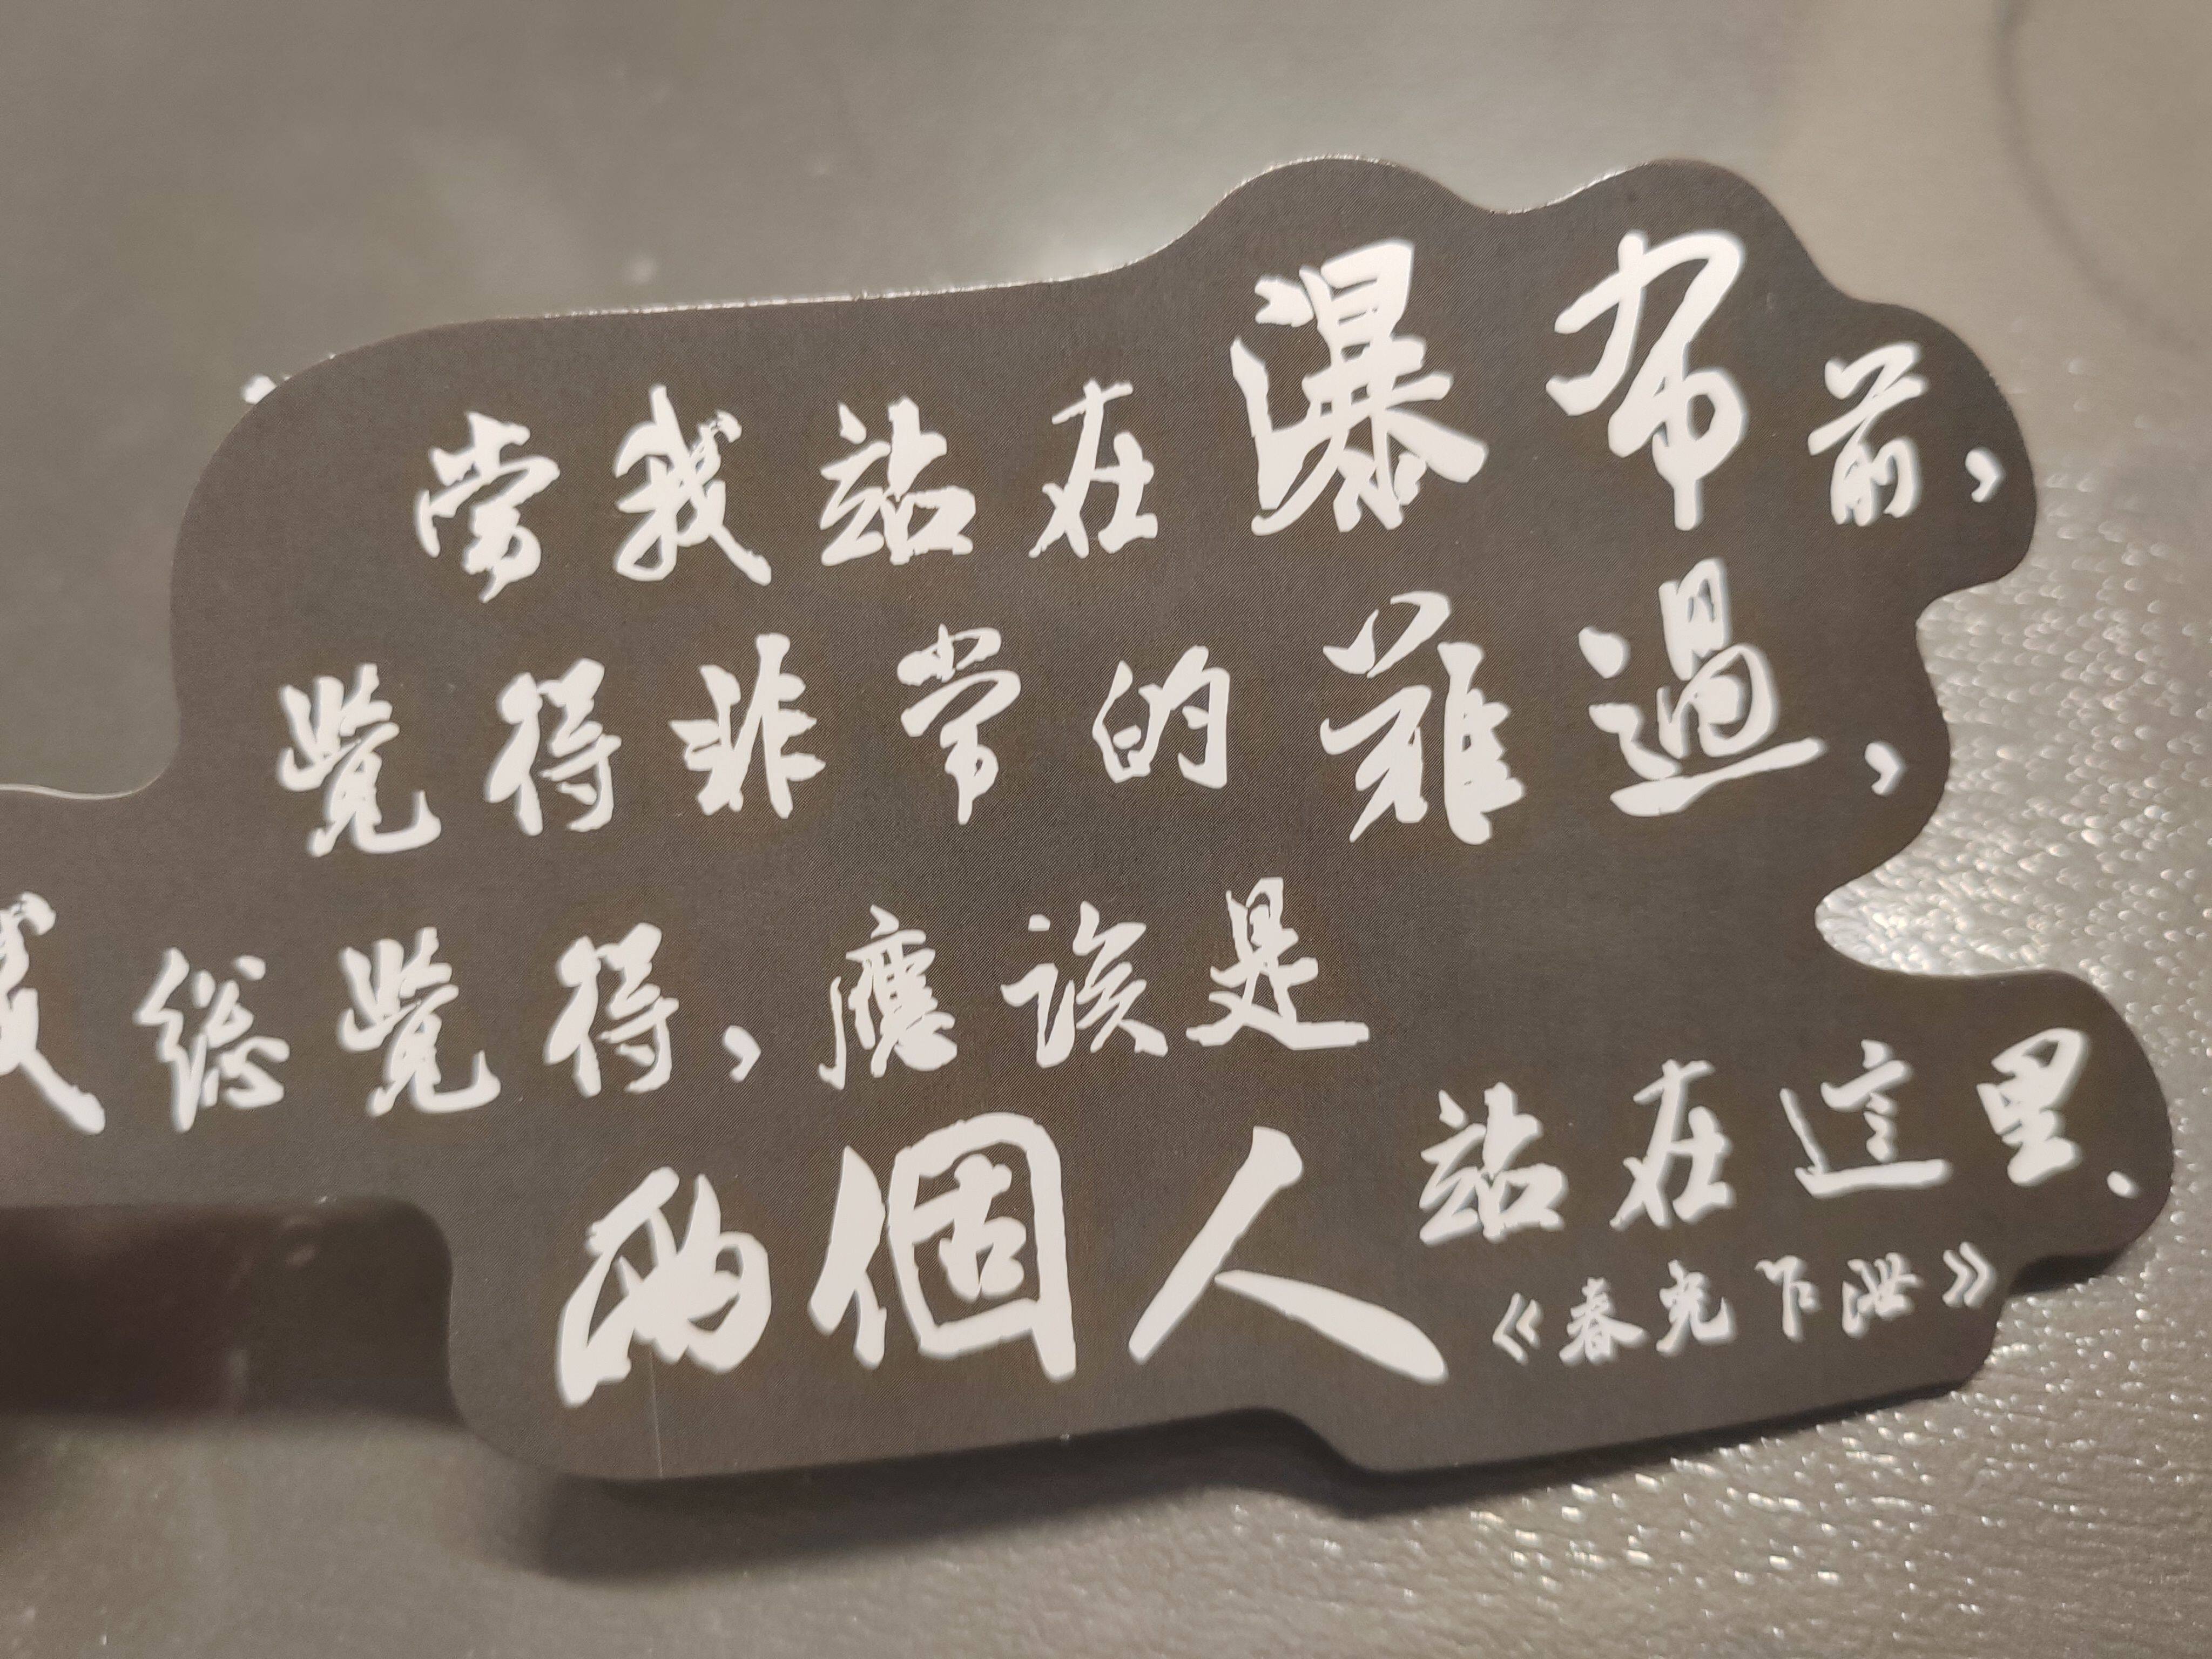 當我站在瀑布前，
覺得非常的難過，
我總覺得，應該是
兩個人站在這里、
《春光乍泄》